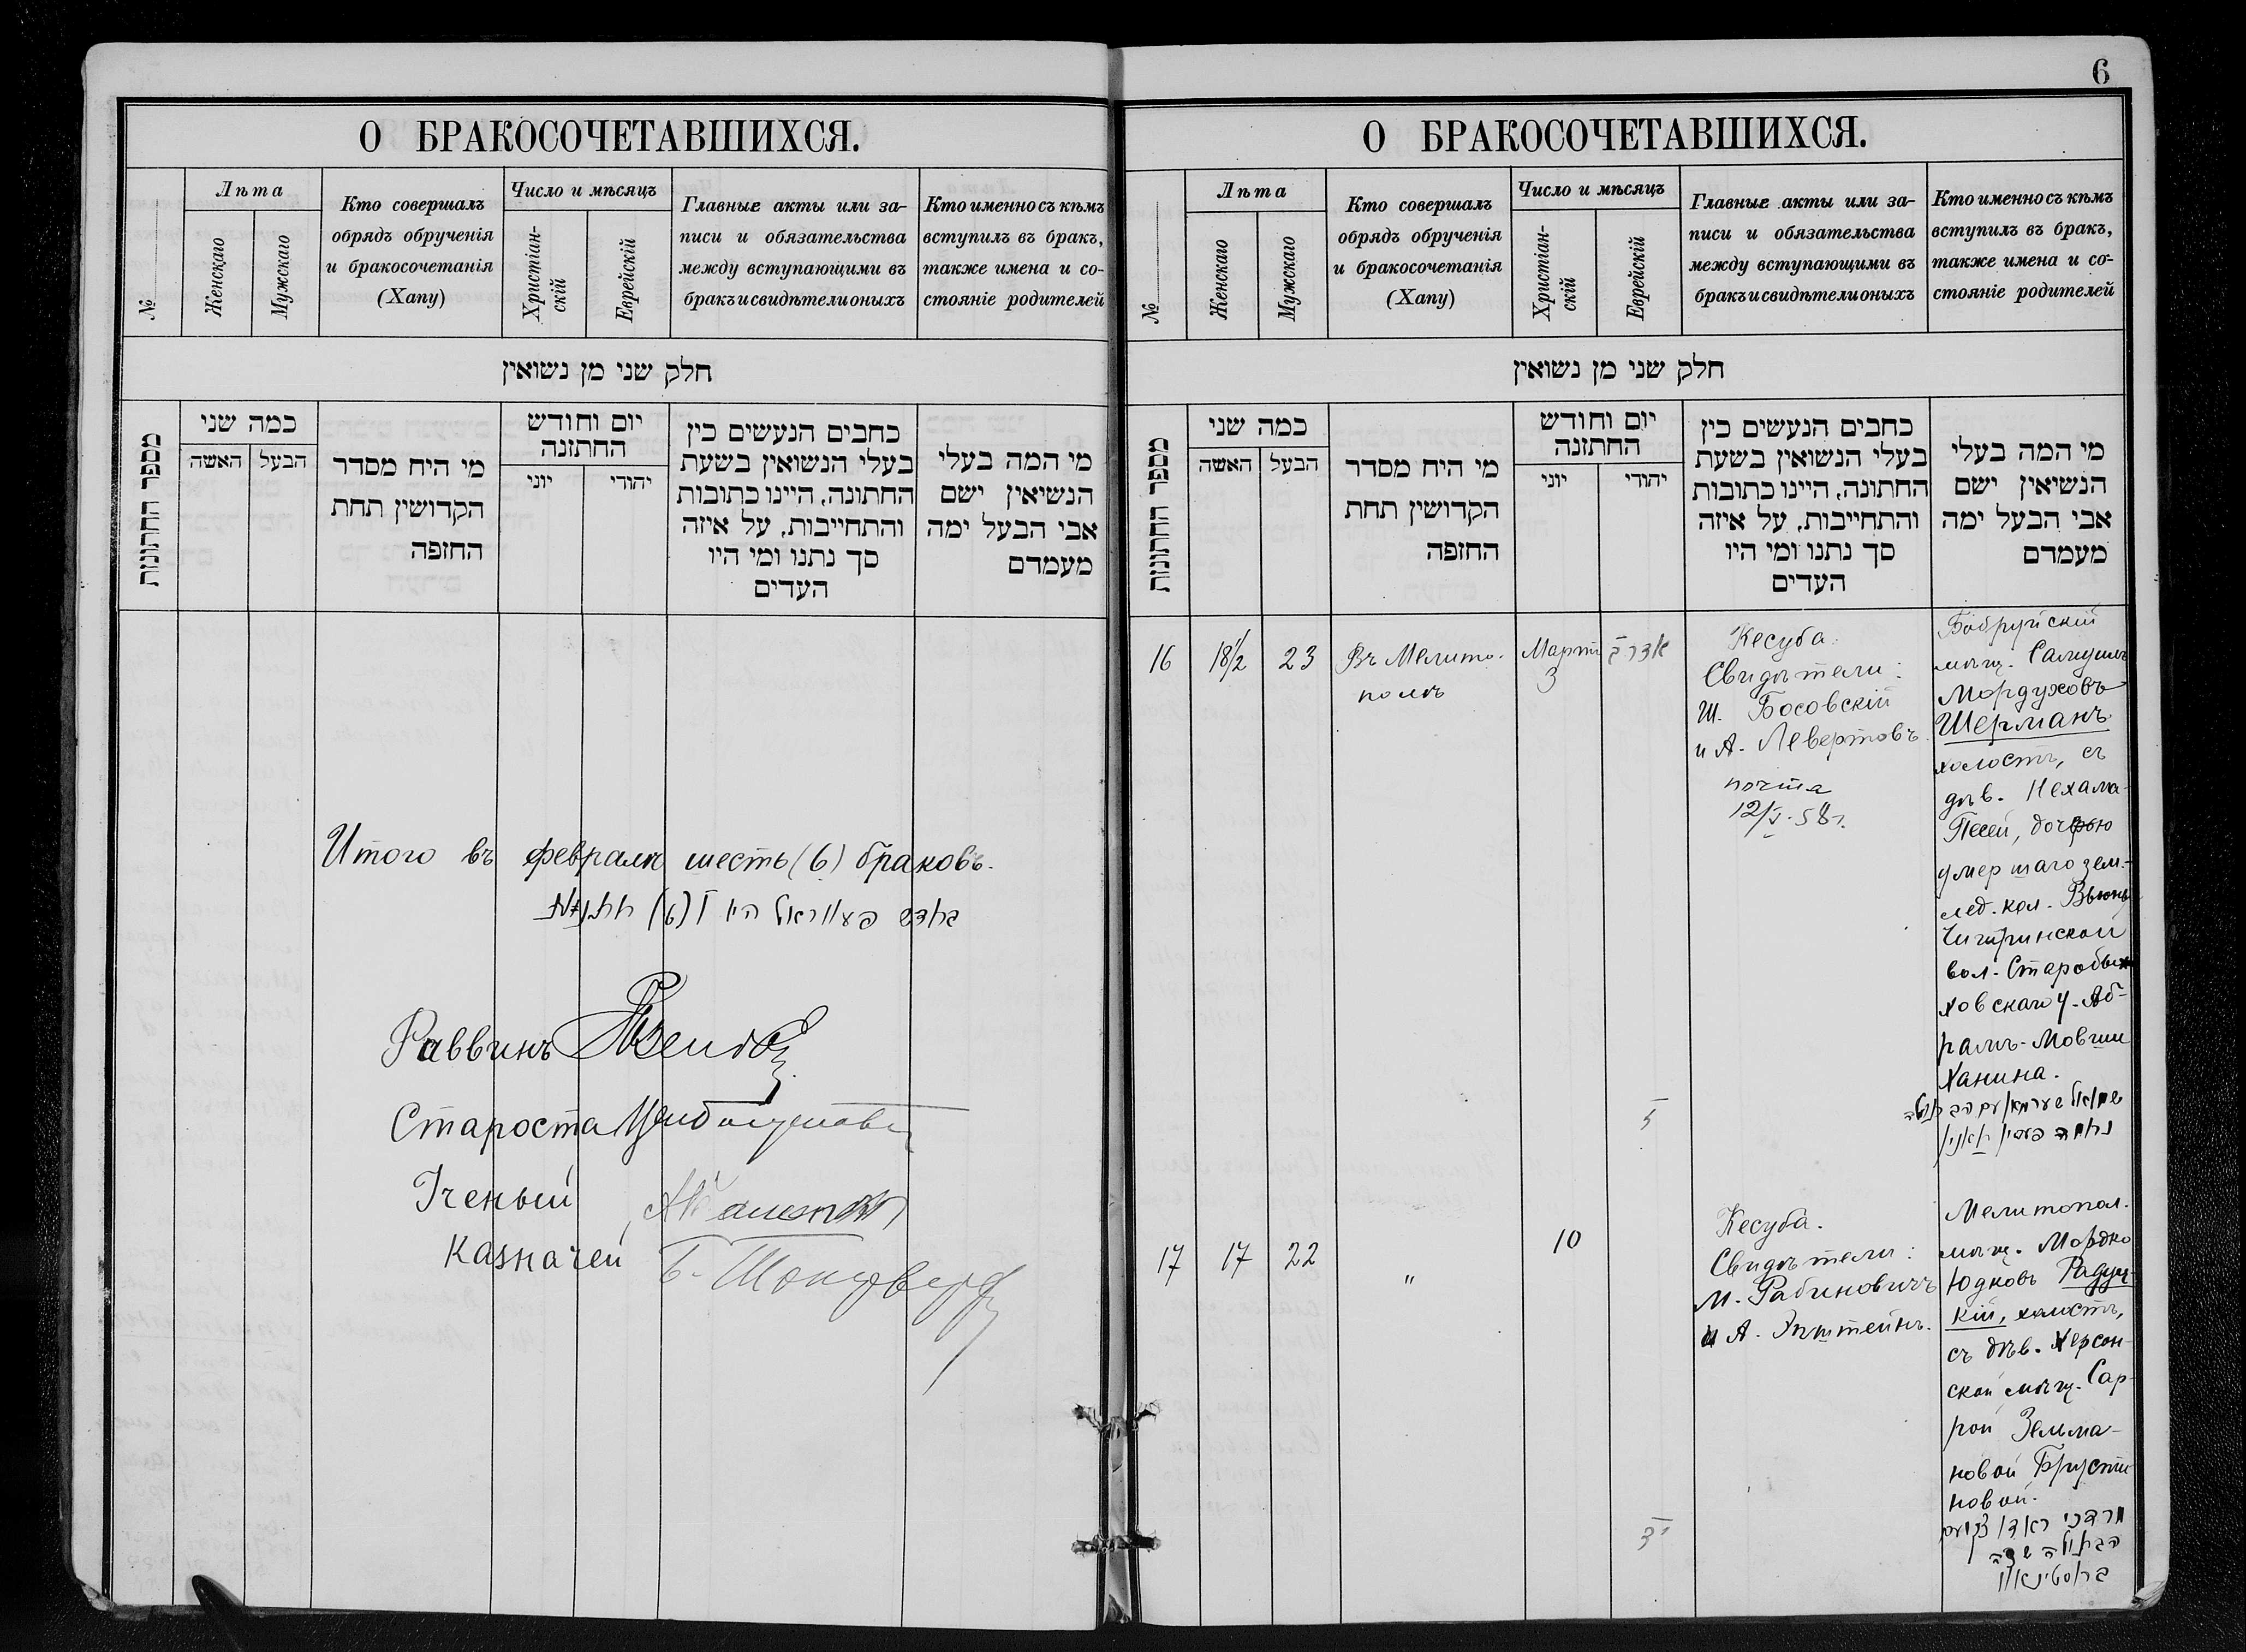 О БРАКОСОЧЕТАВШИХСЯ.
№
Лѣта
Женскаго
Мужскаго
Кто совершалъ
обрядъ обрученія
и бракосочетанія
(Хапу)
Число и мѣсяцъ
Христіан-
скій
Еврейскій
Главные акты или за-
писи и обязательства
между вступающими въ
бракъ и свидѣтели оныхъ
Кто именно съ кѣмъ
вступилъ въ бракъ,
также имена и со-
стояніе родителей
חלק שני מן נשואין
מספר החתונות
כמה שני
האשה
הבעל
מי היח מסדר
הקדושין תחת
החופה
יום וחודש
החתונה
יוני
יהודי
כחבים הנעשים כין
בעלי הנשואין בשעת
החתונה, היינו כתובות
והתחייבות, על איזה
סך נתנו ומי היו
העדים
מי המה בעלי
הנשיאין ישם
אבי הבעל ימה
מעמדם
Итого въ февралѣ шесть (6) браковъ.
Раввинъ
Староста
Ученый
Казначей
6
О БРАКОСОЧЕТАВШИХСЯ.
№
Лѣта
Женскаго
Мужскаго
Кто совершалъ
обрядъ обрученія
и бракосочетанія
(Хапу)
Число и мѣсяцъ
Христіан-
скій
Еврейскій
Главные акты или за-
писи и обязательства
между вступающими въ
бракъ и свидѣтели оныхъ
Кто именно съ кѣмъ
вступилъ въ бракъ,
также имена и со-
стояніе родителей
חלק שני מן נשואין
מספר החתונות
כמה שני
האשה
הבעל
מי היח מסדר
הקדושין תחת
החופה
יום וחודש
החתונה
יוני
יהודי
כחבים הנעשים כין
בעלי הנשואין בשעת
החתונה, היינו כתובות
והתחייבות, על איזה
סך נתנו ומי היו
העדים
מי המה בעלי
הנשיאין ישם
אבי הבעל ימה
מעמדם
16
18½
23
Въ Мелито-
полѣ
Мартъ
3
Кесуба.
Свидѣтели:
Ш. Босовскій
и А. Левертовъ.
почта
12/I-58г.
Бобруйскій
мѣщ. Самуилъ
Мордуховъ
Шерманъ.
холостъ, съ
дѣв. Нехама-
Песей, дочерью
умершаго зем-
лед. кол. Вьюнъ
Чигиринской
вол. Старобы-
ховскаго у. Аб-
рамъ-Мовши
Ханина.
17
17
22
"
10
Кесуба.
Свидѣтели:
М. Рабиновичъ
и А. Эпштейнъ.
Мелитопол.
мѣщ. Мордко
Юдковъ Радун-
кій, холостъ,
съ дѣв. Херсон-
ской мѣщ. Сар-
рой Зельма-
новой Брусти-
новой.